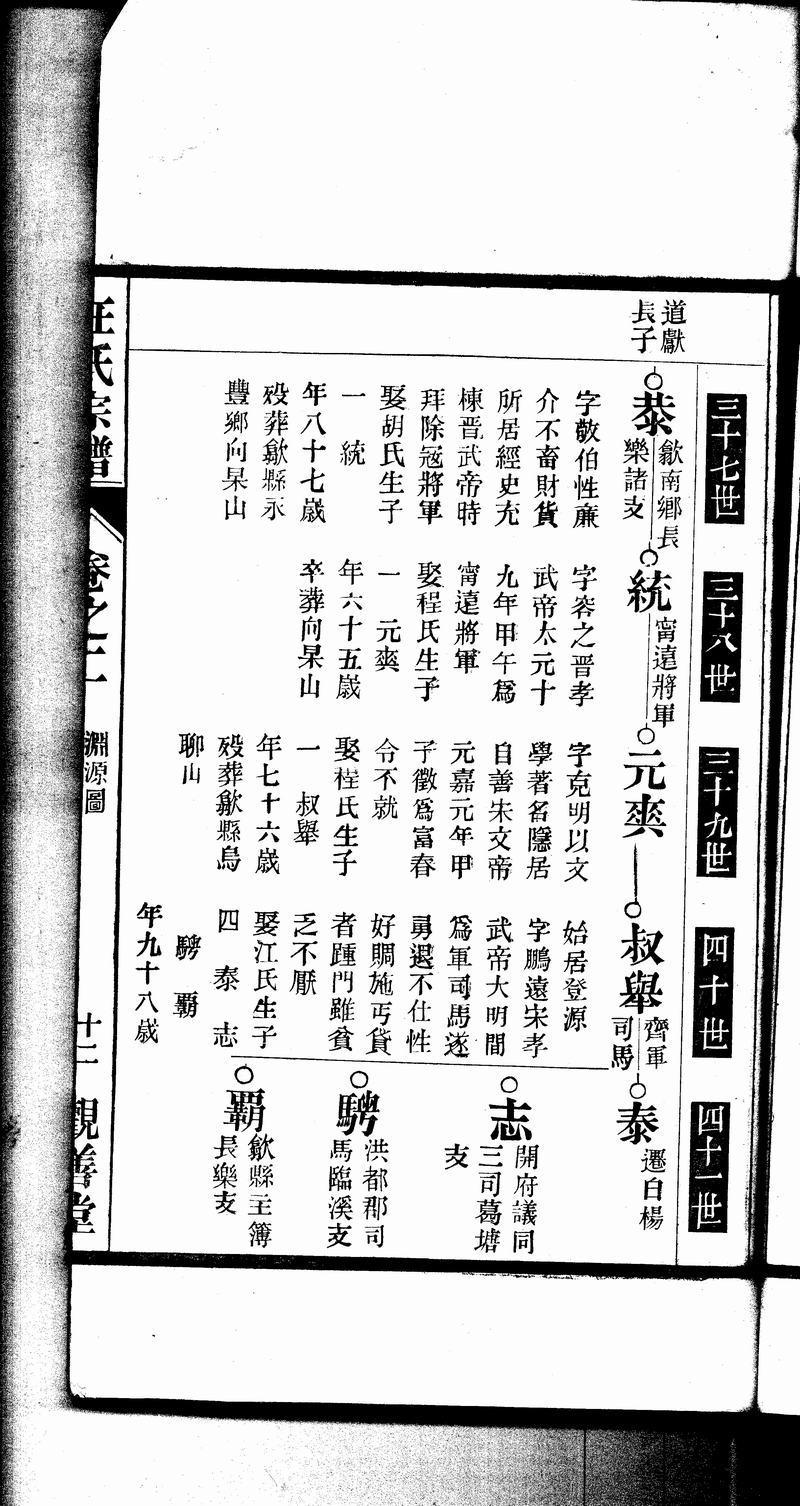 三十七世
三十八世
三十九世
四十世
四十一世
道獻
長子
㳟
歙南鄉長
樂諸支
統
甯遠將軍
元爽
叔舉
齊軍
司馬
泰
遷白楊
字敬伯性廉
介不畜財貨
所居經史充
棟晋武帝時
拜除冦將軍
娶胡氏生子
一 統
年八十七歲
殁葬歙縣永
豐鄉向杲山
字容之晋孝
武帝太元十
九年甲午爲
甯遠將軍
娶程氏生子
一 元爽
年六十五歲
卒葬向杲山
字克明以文
學著名隱居
自善朱文帝
元嘉元年甲
子徵爲富春
令不就
娶桯氏生子
一 叔舉
年七十六歲
殁葬歙縣烏
聊山
始居登源
字鵬遠宋孝
武帝大明間
爲軍司馬遂
勇退不仕性
好賙施丐貸
者踵門雖貧
乏不厭
娶江氏生子
四 泰 志
騁 覇
年九十八歲
志
開府議同
三司葛塘
支
騁
洪都郡司
馬臨溪支
覇
歙縣主簿
長樂支
汪氏宗譜
卷之二
淵源圖
十二
觀善堂